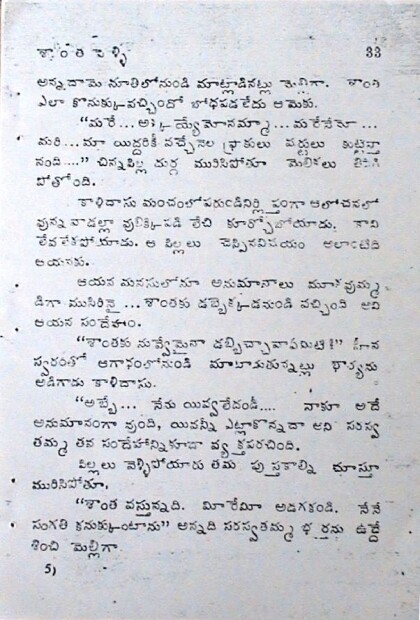 శాంతి పెళ్ళి 33
అన్నదామె నూతిలోనుండి మాట్లాడినట్లు మెల్లిగా. శాంతి
ఎలా కొనుక్కువచ్చిందో బోధపడలేదు ఆమెకు.
"మరే... అక్కయ్యేమోనమ్మా... మరేనేమో...
మరి...మా యిద్దరికీ వచ్చేనెల ఫ్రాకులు పట్టులు కుట్టిస్తా
నంది...." చిన్నపిల్ల దుర్గ మురిసిపోతూ మెలికలు తిరిగి
పోతోంది.
కాళిదాసు మంచంలోపరుండినిర్లిప్తంగా ఆలోచనలో
వున్న వాడల్లా వులిక్కిపడి లేచి కూర్చోబోయాడు. కాని
లేవలేకపోయాడు. ఆ పిల్లలు చెప్పినవిషయం అలాంటిది
ఆయనకు.
ఆయన మనసులోనూ అనుమానాలు మూకవుమ్మ
డిగా ముసిరినై... శాంతకు డబ్బెక్కడనుండి వచ్చింది అని
ఆయన సందేహం.
"శాంతకు నువ్వేమైనా డబ్బిచ్చావాఏమిటి?" హీన
స్వరంతో అగాధంలోనుండి మాటాడుతున్నట్లు భార్యను
అడిగాడు కాళిదాసు.
"అబ్బే... నేను యివ్వలేదండీ.... నాకూ అదే
అనుమానంగా వుంది, యివన్నీ ఎట్లాకొన్నదా అని సరస్వ
తమ్మ తన సందేహాన్నికూడా వ్యక్తపరచింది.
పిల్లలు వెళ్ళిపోయారు తమ పుస్తకాల్ని చూస్తూ
మురిసిపోతూ.
"శాంత వస్తున్నది. మీరేమీ అడగకండి. నేనే
సంగతి కనుక్కుంటాను" అన్నది సరస్వతమ్మ భర్తను ఉద్దే
శించి మెల్లిగా.
5)